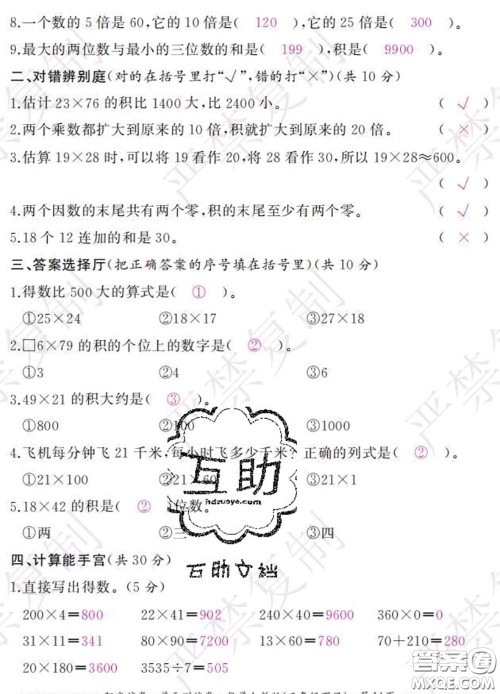 8.一个数的5倍是60,它的10倍是( 120 ),它的25倍是( 300 )。
9.最大的两位数与最小的三位数的和是( 199 ),积是( 9900 )。
二、对错辨别庭(对的在括号里打“√”,错的打“×”)(共10分)
1.估计23×76的积比1400大,比2400小。 ( √ )
2.两个乘数都扩大到原来的10倍,积就扩大到原来的20倍。 ( × )
3.估算19×28时,可以将19看作20,将28看作30,所以19×28≈600。
( √ )
4.两个因数的末尾共有两个零,积的末尾至少有两个零。 ( √ )
5.18个12连加的和是30。 ( × )
三、答案选择厅(把正确答案的序号填在括号里)(共10分)
1.得数比500大的算式是( ① )。
①25×24 ②18×17 ③27×18
2.□6×79的积的个位上的数字是( ② )。
①3 ②4 ③6
3.49×21的积大约是( ③ )。
①800 ③1000
4.飞机每分钟飞21千米,每小时飞多少千米?正确的列式是( ② )。
①21×100 ②21×60 ③21×1
5.18×42的积是( ② )位数。
①两 ②三 ③四
互助
hdzuoye.com
互助文档
四、计算能手宫(共30分)
1.直接写出得数。(5分)
200×4=800 22×41=902 240×4=960 360×0=0
31×11=341 880÷11=80 13×60=780 70+210=280
20×180=3600 3535÷7=505
严禁复制